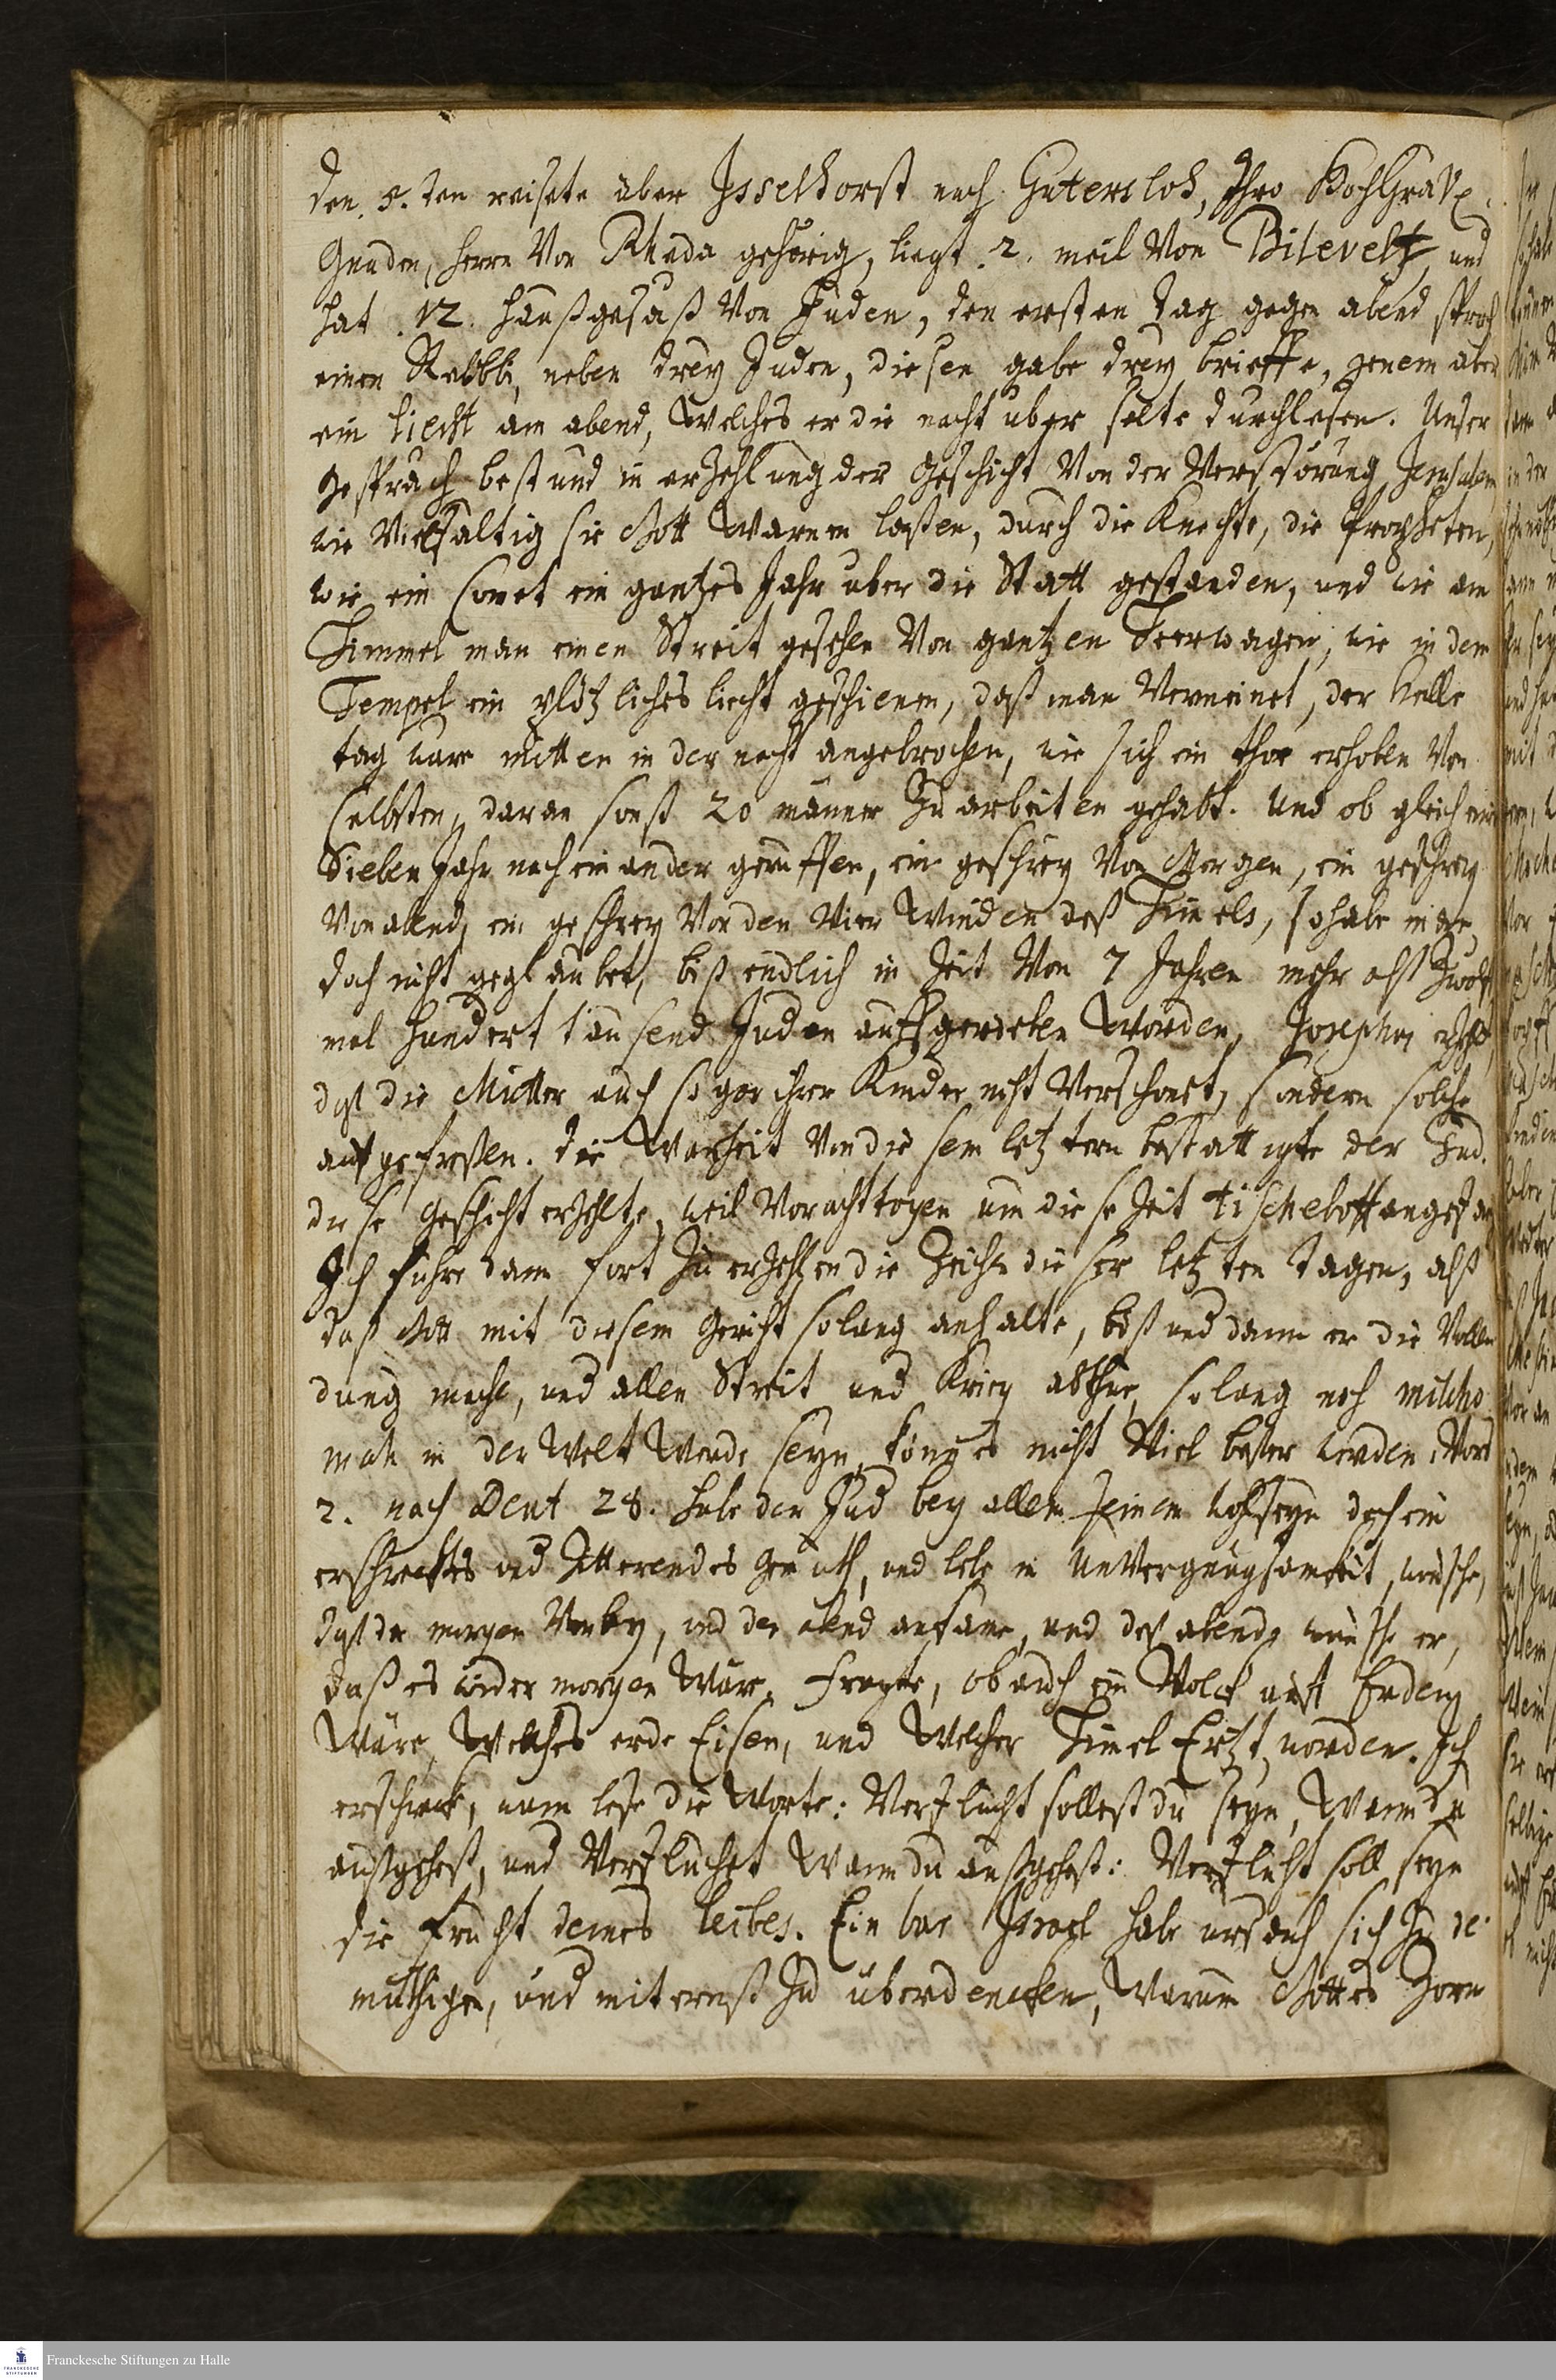 den. 5. ten reisete über Isselhorst nach Gütersloh, Ihro HochGräfl.
Gnaden, Herrn Von Rheda gehörig, liegt .2. meil Von Bilevelt, und
hat .12. haußgesäß Von Juden, den ersten tag gegen abend sprach
einen Rabbi, neben drey Juden, diesen gabe drey brieffe, jenem aber
ein liecht am abend, Welches er die nacht uber solte durchlesen. Unser
gespräch bestund in erzehlung der Geschicht Von der Verstörung Jerusalem
wie Vielfältig sie Gott Warnen laßen, durch die Knechte, die Propheten,
wie ein Comet ein gantzes Jahr uber die Statt gestanden, und wie am
Himmel man einen Streit gesehen Von gantzen Heerwagen, wie in dem
Tempel ein plötzliches liecht geschienen, daß man Vermeinet, der helle
tag ware mitten in der nacht angebrochen, wie sich ein thor erhoben Von
selbsten, daran sonst 20 männer Zu arbeiten gehabt. Und ob gleich einer
Sieben Jahr nach einander geruffen, ein geschrey Von Morgen, ein geschrey
Von abend, ein geschrey Von den Vier Winden deß Himels, so habe man
doch nicht geglaubet, biß endlich in Zeit Von 7 Jahren mehr alß Zwölf
mal hundert tausend Juden auffgerieben Worden, Josephus erzehlt,
daß die Mütter auch so gar ihrer Kinder nicht Verschonet, sondern solche
aufgefreßen. Die Warheit Von diesem letztern bestättigte der Jud.
diese Geschicht erzehlte, weil Vor acht tagen um diese Zeit tischeboff angefan
Ich fuhre dann fort Zu erzehlen die Zeichen dieser letzten tagen, alß
daß Gott mit diesem Gericht so lang anhalte, biß und dann er die Vollen
dung mache, und allen Streit und Krieg abthue, so lang noch milcho
mah in der Welt Werde seyn, könne es nicht Viel beßer werden. Vors
2. nach Deut 28. habe der Jud bey allem seinem wohlseyn doch ein
erschrecktes und Zitterendes Gemüth, und lebe in UnVergnügsamkeit, wünsche,
daß der morgen Vorbey, und der abend ankäme, und deß abends wünsche er,
daß es wider morgen Wäre. Fragte, ob auch ein Volck auff Erden
Wäre, Welches erde Eisen, und Welcher Himel Ertzt worden. Ich
erschrack, wann lese die Worte: Verflucht sollest du seyn, Wann du
außgehest, und Verfluchet Wann du außgehest: Verflucht soll seyn
die Frucht deines leibes. Ein bar Israel habe ursach sich Zu de
müthigen, und mit ernst Zu überdencken, Warum Gottes Zorn
Franckesche Stiftungen zu Halle
FRANCKESCHE
STIFTUNGEN